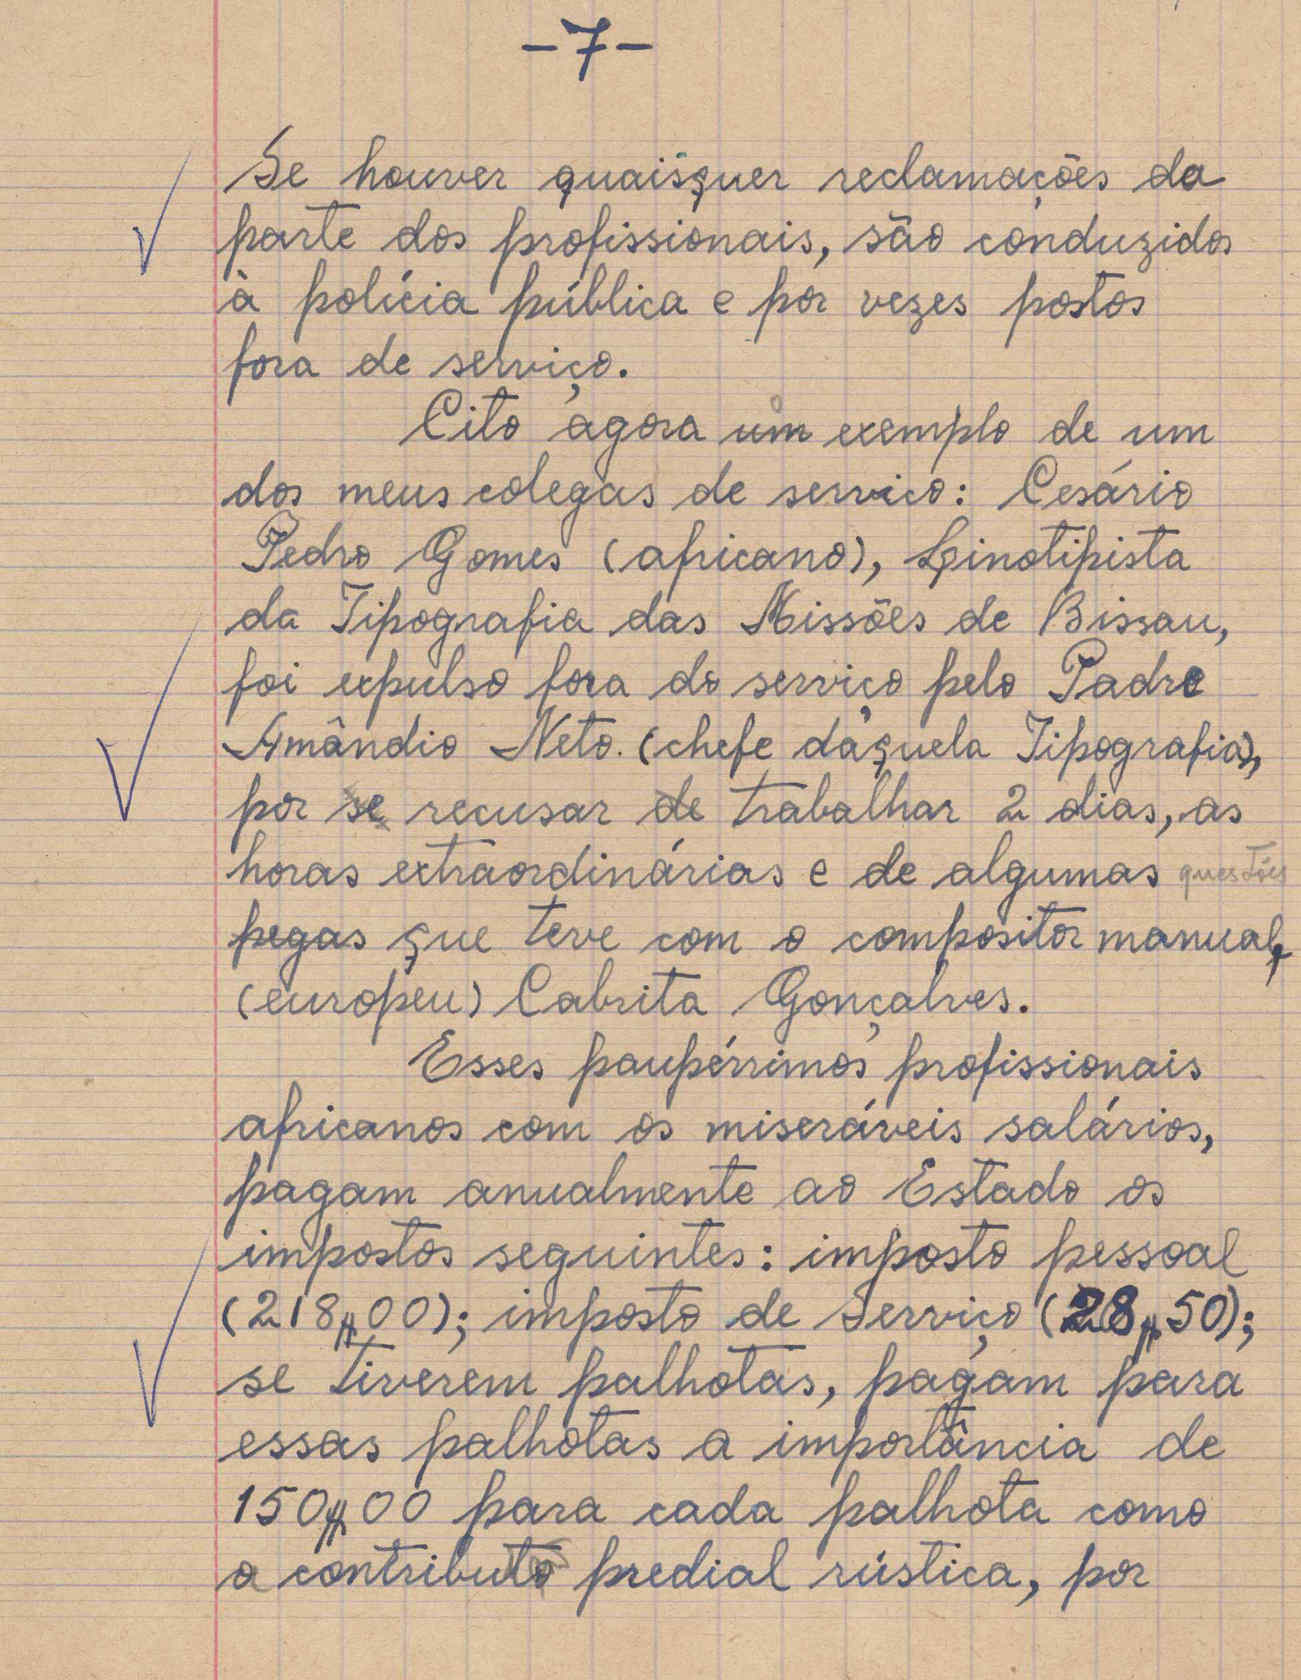 -7-
Se houver quaisquer reclamações da
parte dos profissionais, são conduzidos
à polícia pública e por vezes postos
fora de serviço.
Cito agora um exemplo de um
dos meus colegas de serviço: Cesário
Pedro Gomes (africano), Linotipista
da Tipografia das Missões de Bissau,
foi expulso fora do serviço pelo Padre
Amândio Neto. (chefe daquela Tipografia),
por se recusar de trabalhar 2 dias, as
horas extraordinárias e de algumas questões
pegas que teve com o compositor manual,
(europeu) Cabrita Gonçalves.
Esses paupérrimos profissionais
africanos com os miseráveis salários,
pagam anualmente ao Estado os
impostos seguintes: imposto pessoal
(218$00); imposto de serviço (28$50);
se tiverem palhotas, pagam para
essas palhotas a importância de
150$00 para cada palhota como
a contributo predial rústica, por